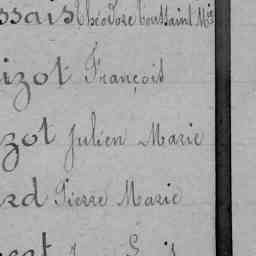 ssais Théodore Toussaint Mie
izot François
zot Julien Marie
rd Pierre Marie